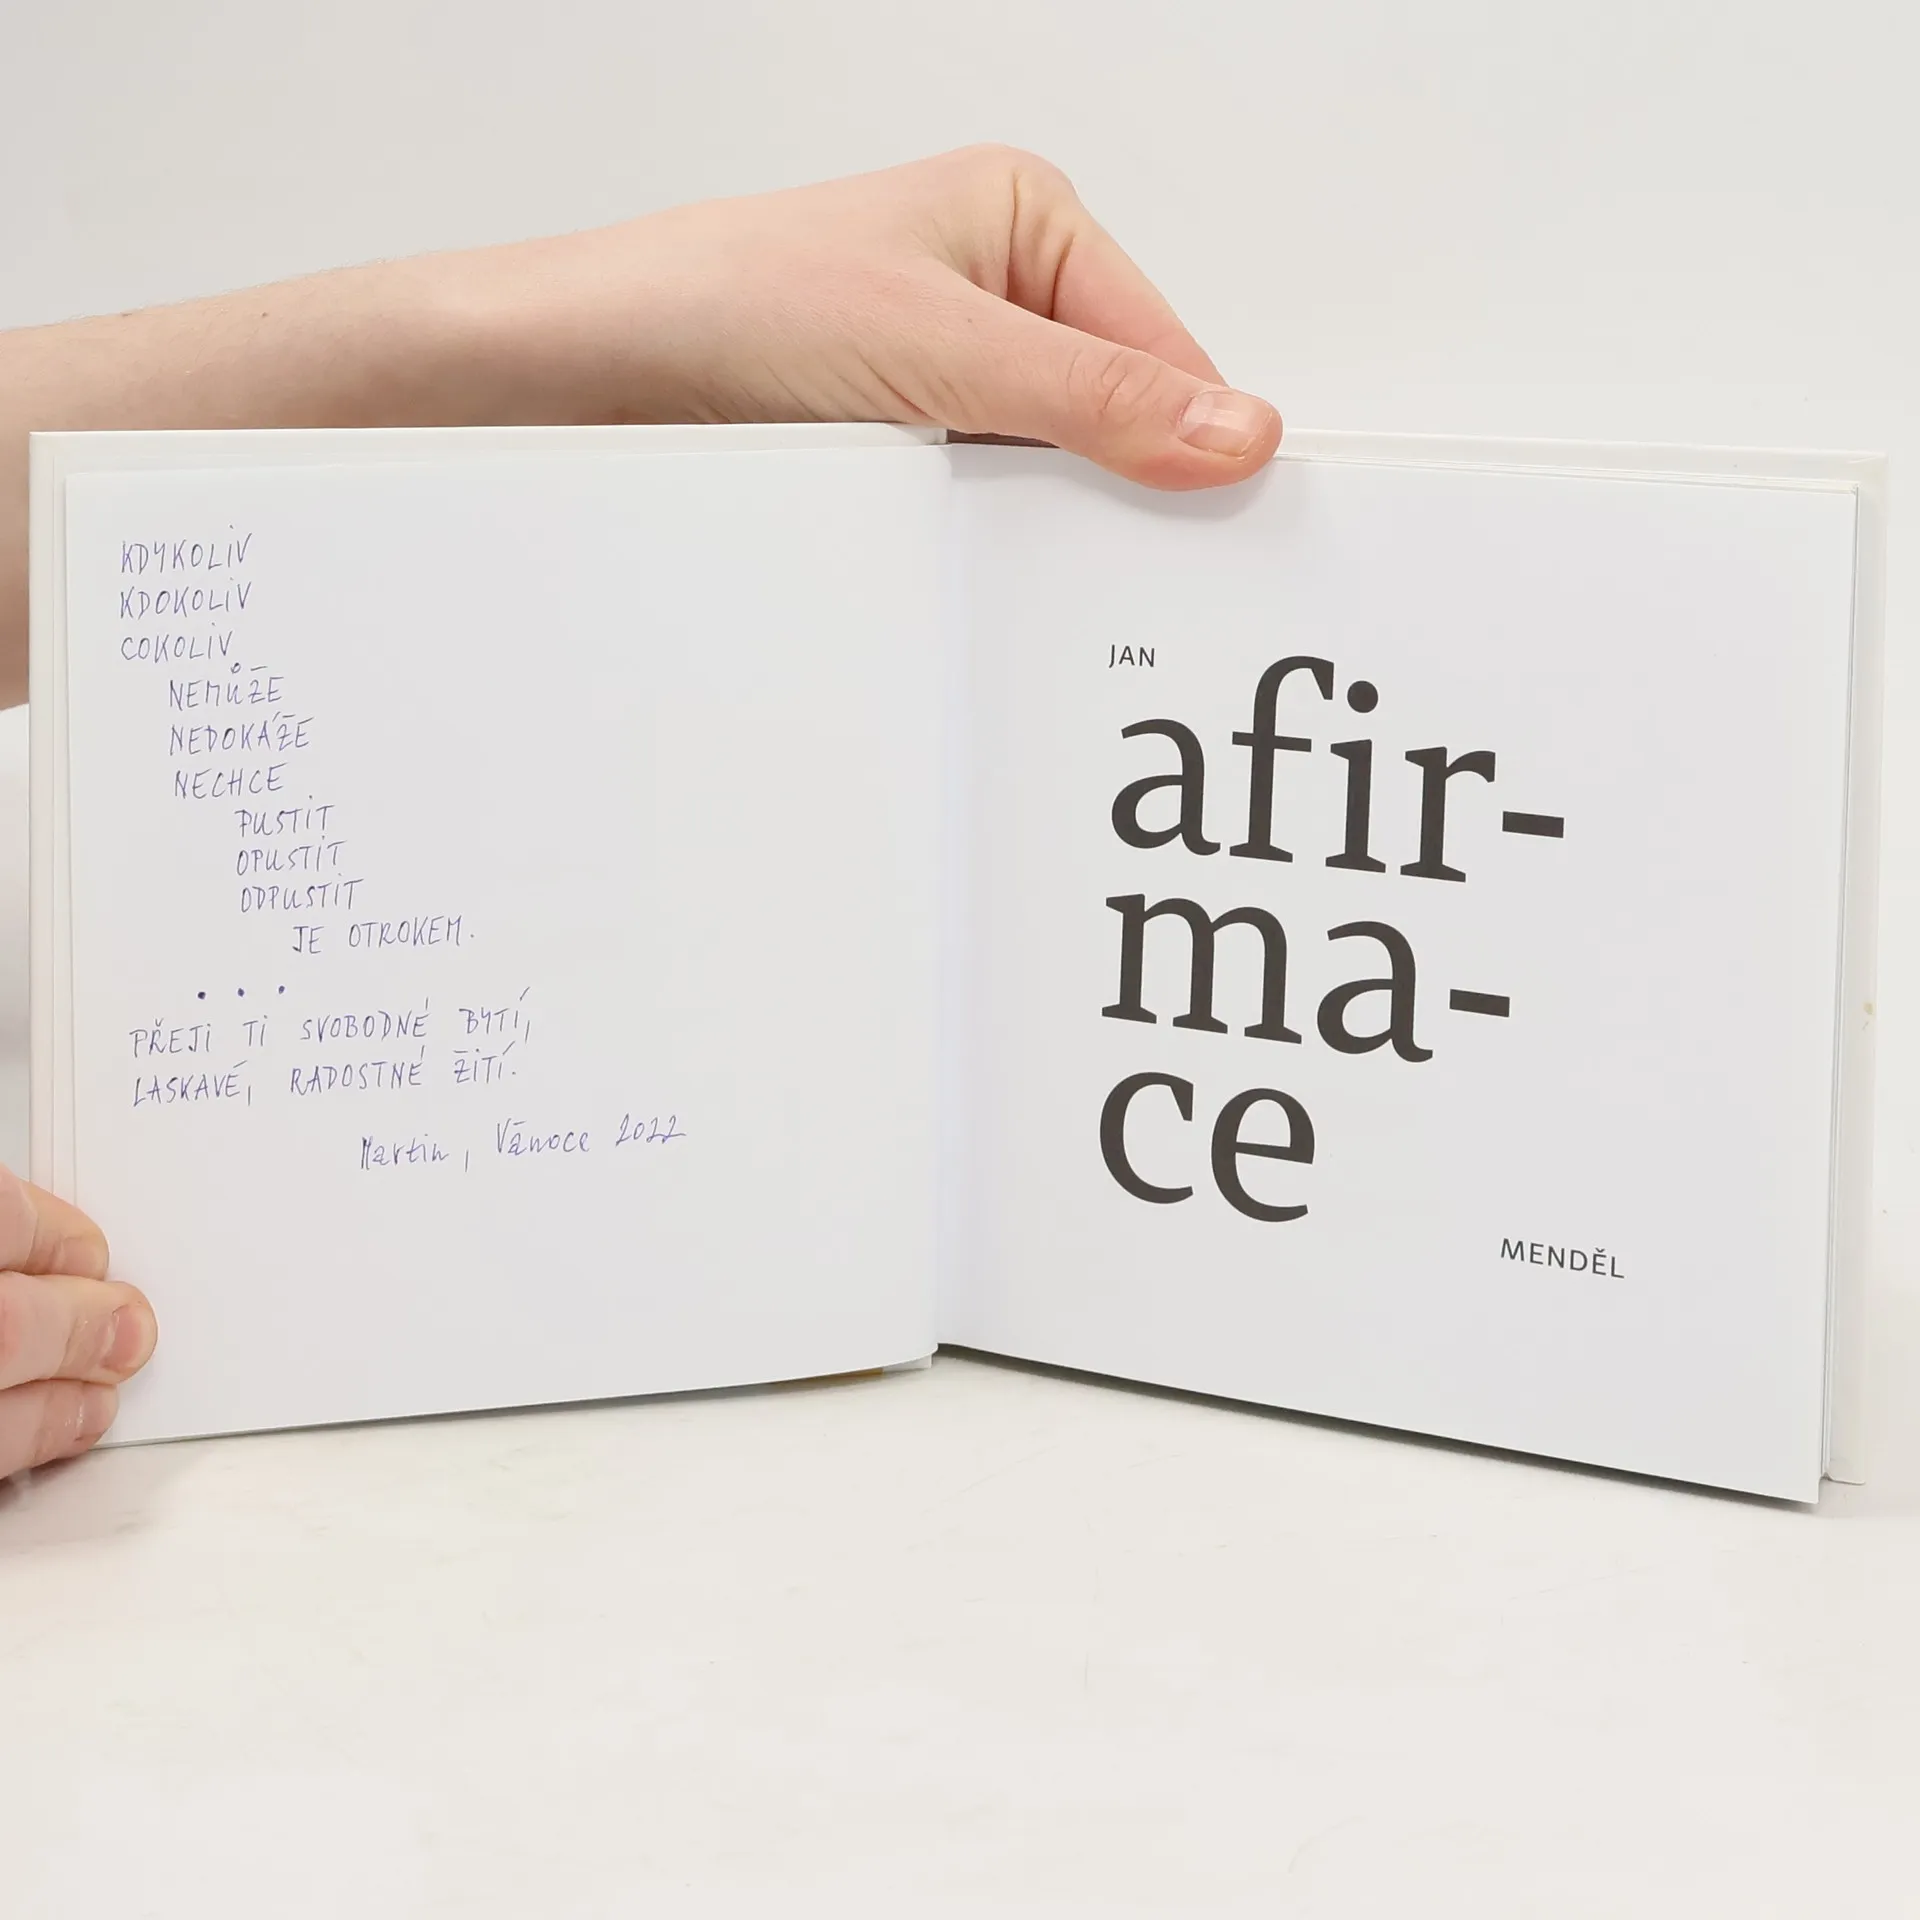 KDYKOLIV
KDOKOLIV
COKOLIV
NEMŮŽE
NEDOKÁŽE
NECHCE
PUSTIT
OPUSTIT
ODPUSTIT
JE OTROKEM.
...
PŘEJI TI SVOBODNÉ BYTÍ,
LASKAVÉ, RADOSTNÉ ŽITÍ.
Martin, Vánoce 2022
JAN
afir-
ma-
ce
MENDĚL